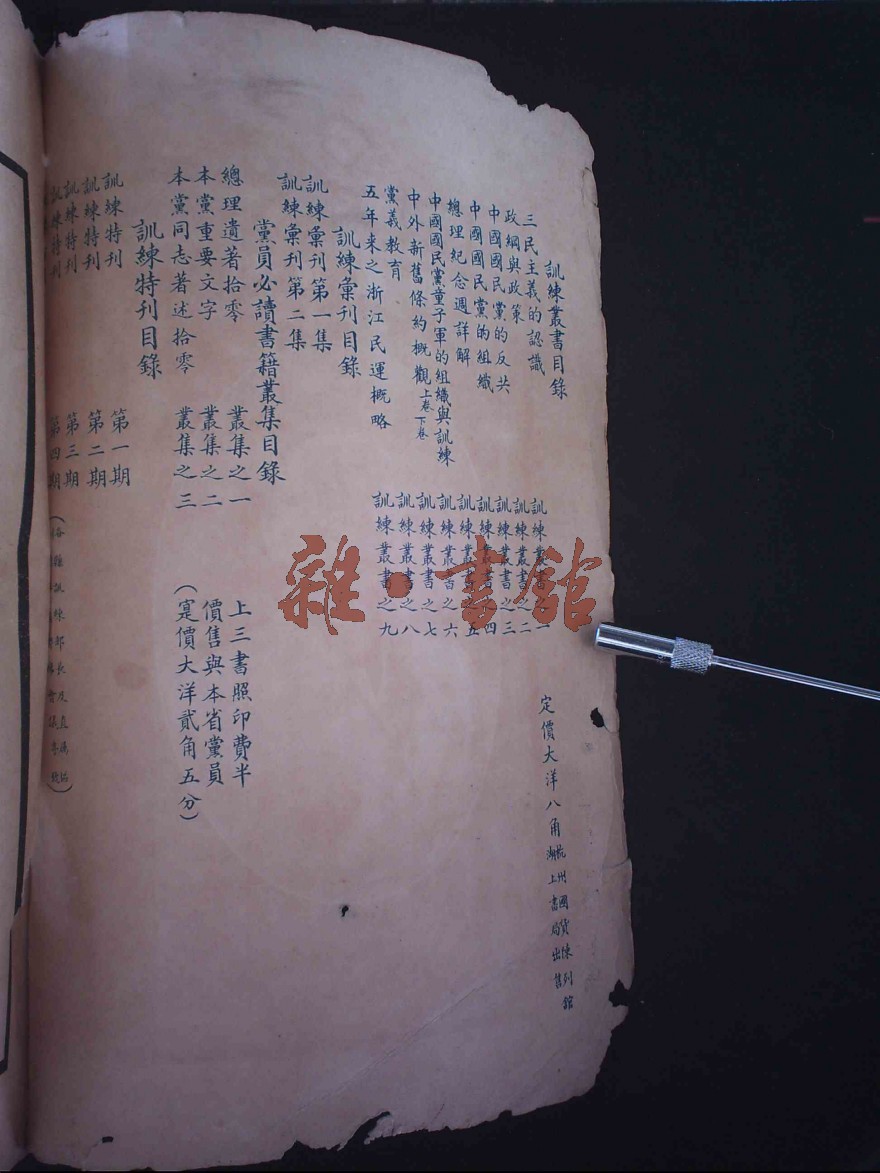 訓練叢書目錄
三民主義的認識 訓練叢書之一
政綱與政策 訓練叢書之二
中國國民黨的反共 訓練叢書之三
中國國民黨的組織 訓練叢書之四
總理紀念週詳解 訓練叢書之五
中國國民黨童子軍的組織與訓練 訓練叢書之六
中外新舊條約概觀上卷下卷 訓練叢書之七
黨義教育 訓練叢書之八
五年来之浙江民運概略 訓練叢書之九
定價大洋八角 杭州國貨陳列館
湖上書局出售
訓練彙刊目錄
訓練彙刊第一集
訓練彙刊第二集
黨員必讀書籍叢集目錄
總理遺著拾零 叢集之一
本黨重要文字 叢集之二
本黨同志著述拾零 叢集之三
上三書照印費半
價售與本省黨員
(寔價大洋貳角五分)
訓練特刊目錄
訓練特刊 第一期
訓練特刊 第二期
訓練特刊 第三期
訓練特刊 第四期
(各縣訓練部長及直屬
雜·書館